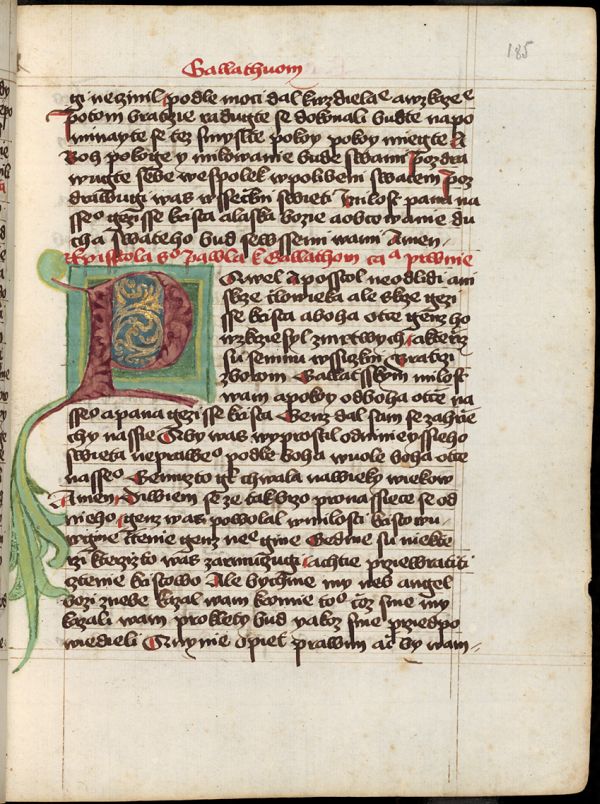 185
Gallathuom
gi neczinil podle moci dal k wzdielae a w zkrze
potom bratrzie radugte se dokonali budte napo
minayte se tez smyslte pokoy pokoy miegte A
Boh pokoge y milowanie bude s wami Pozdra
wugte sebe wespolek w polibeni swatem Poz
drawugi was wssečkni swieti Milost pana na
sseo gezisse krista a laska bozie a obcowanie du
cha swateho bud se wssemi wami Amen
Episstola so Pawla k Gallathom caa prwnie
Pawel Aposstol ne od lidi ani
skrze člowieka ale skrze gezi
sse krista a boha otce genz ho
wzkrziesyl z mrtwych a kterziz
su se mnu wssiczkni Bratrzi
zborom Gallatsskym milost
wam a pokoy od boha otce na
sseo a pana gezisse krista Genz dal sam se za hrzie
chy nassie Aby was wyprostil od nynieyssieho
swieta nepraweo podle boha wuole boha otce
nasseo Gemuzto gt chwala na wieky wiekow
Amen Diwiem se ze tak brzo pronassiece se od
nieho genz was powolal w milost kristowu
w gine čtenie genz nee gine Gedine su niekte
rzi kterzizto was zarmucugi a chtie przewratiti
cztenie kristowo Ale bychme my neb angel
bozi z nebe kazal wam kromie too coz sme my
kazali wam proklety bud yakoz sme przedpo
wiedieli A nynie opiet prawim ač by wam